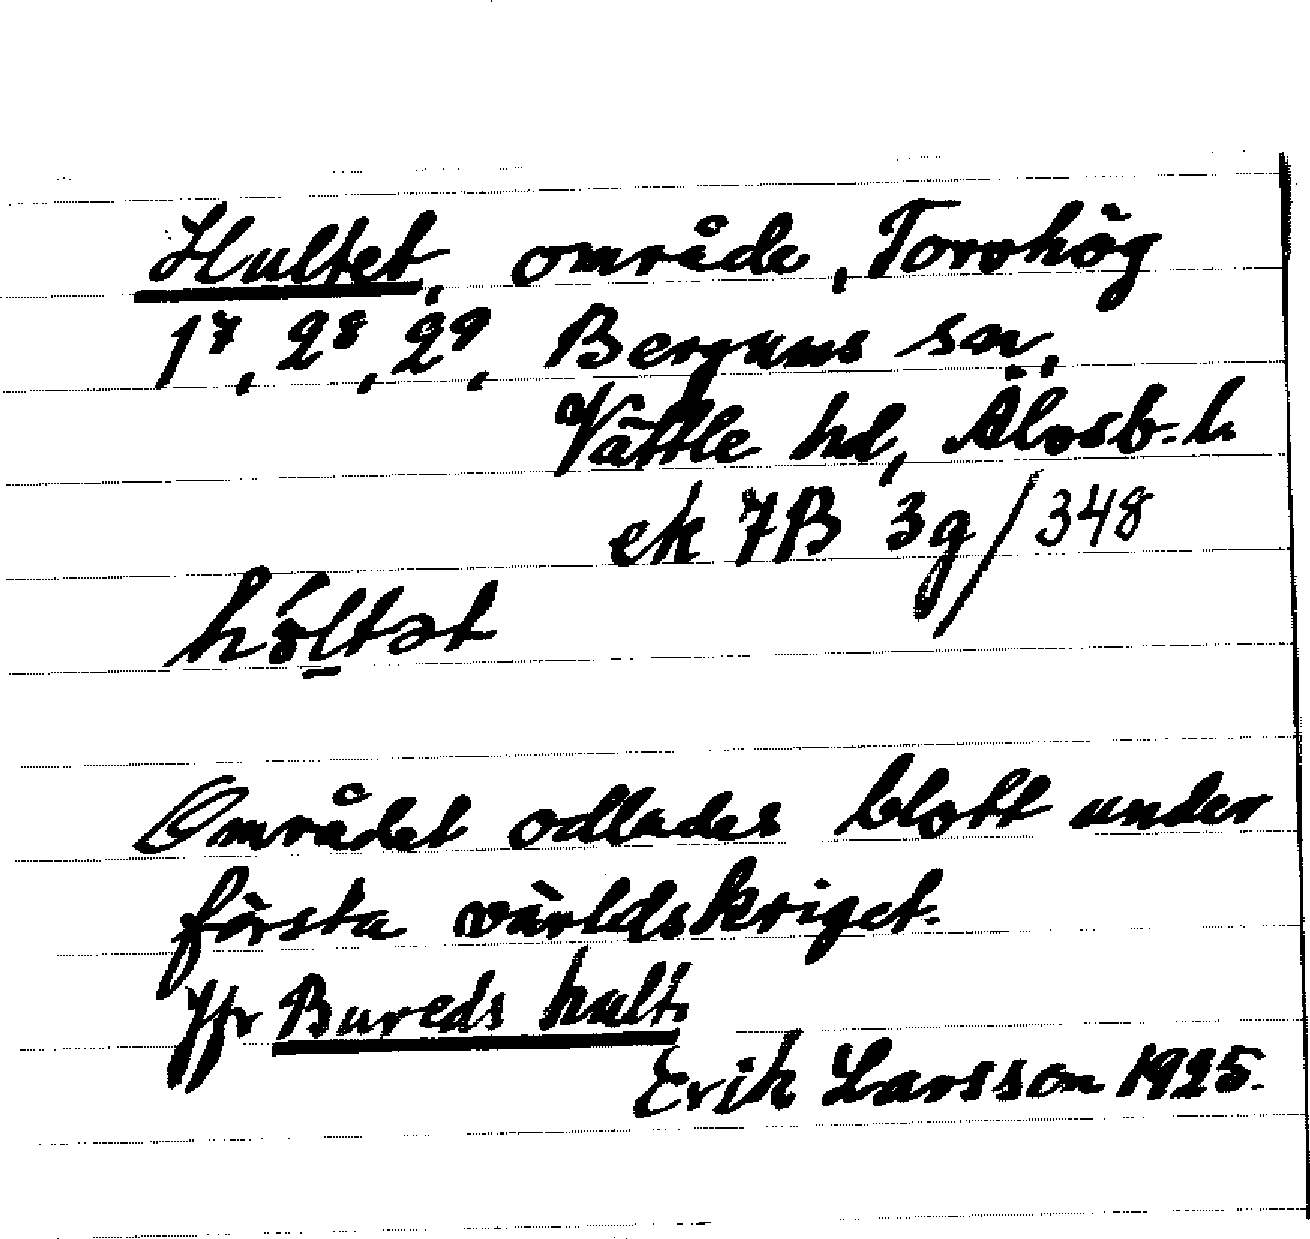 Hultet, område, Torvhög
1⁷, 2⁸, 2⁹, Bergums sn,
Vättle hd, Älvsb. l.
ek 7B 3g/348
hóltət
Området odlades blott under
första världskriget.
Jfr Bureds hult.
Erik Larsson 1925.